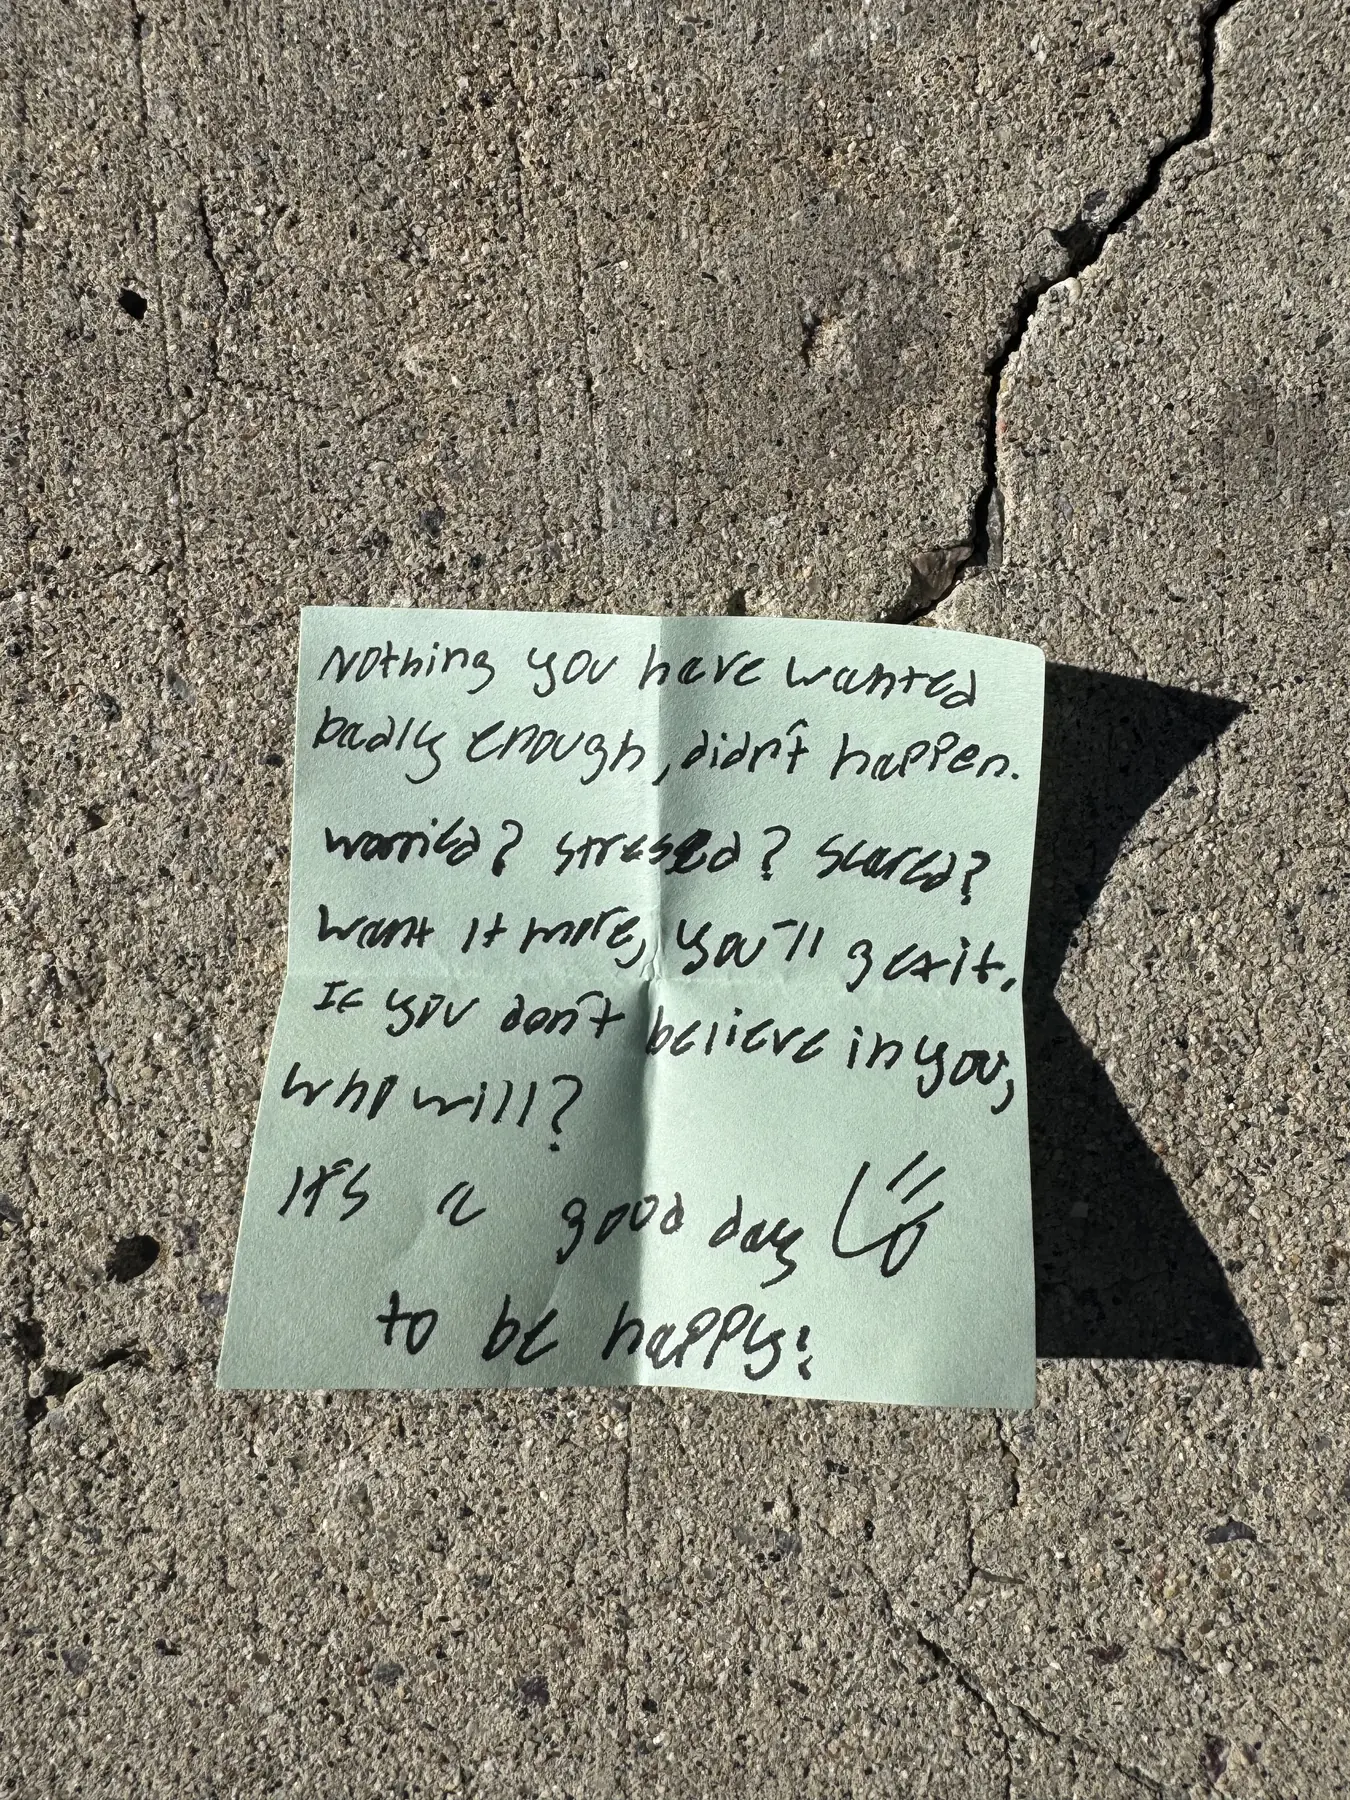 Nothing you have wanted
badly enough, didn't happen.
worried? stressed? scared?
want it more, you'll get it.
If you don't believe in you,
who will?
It's a good day
to be happy!